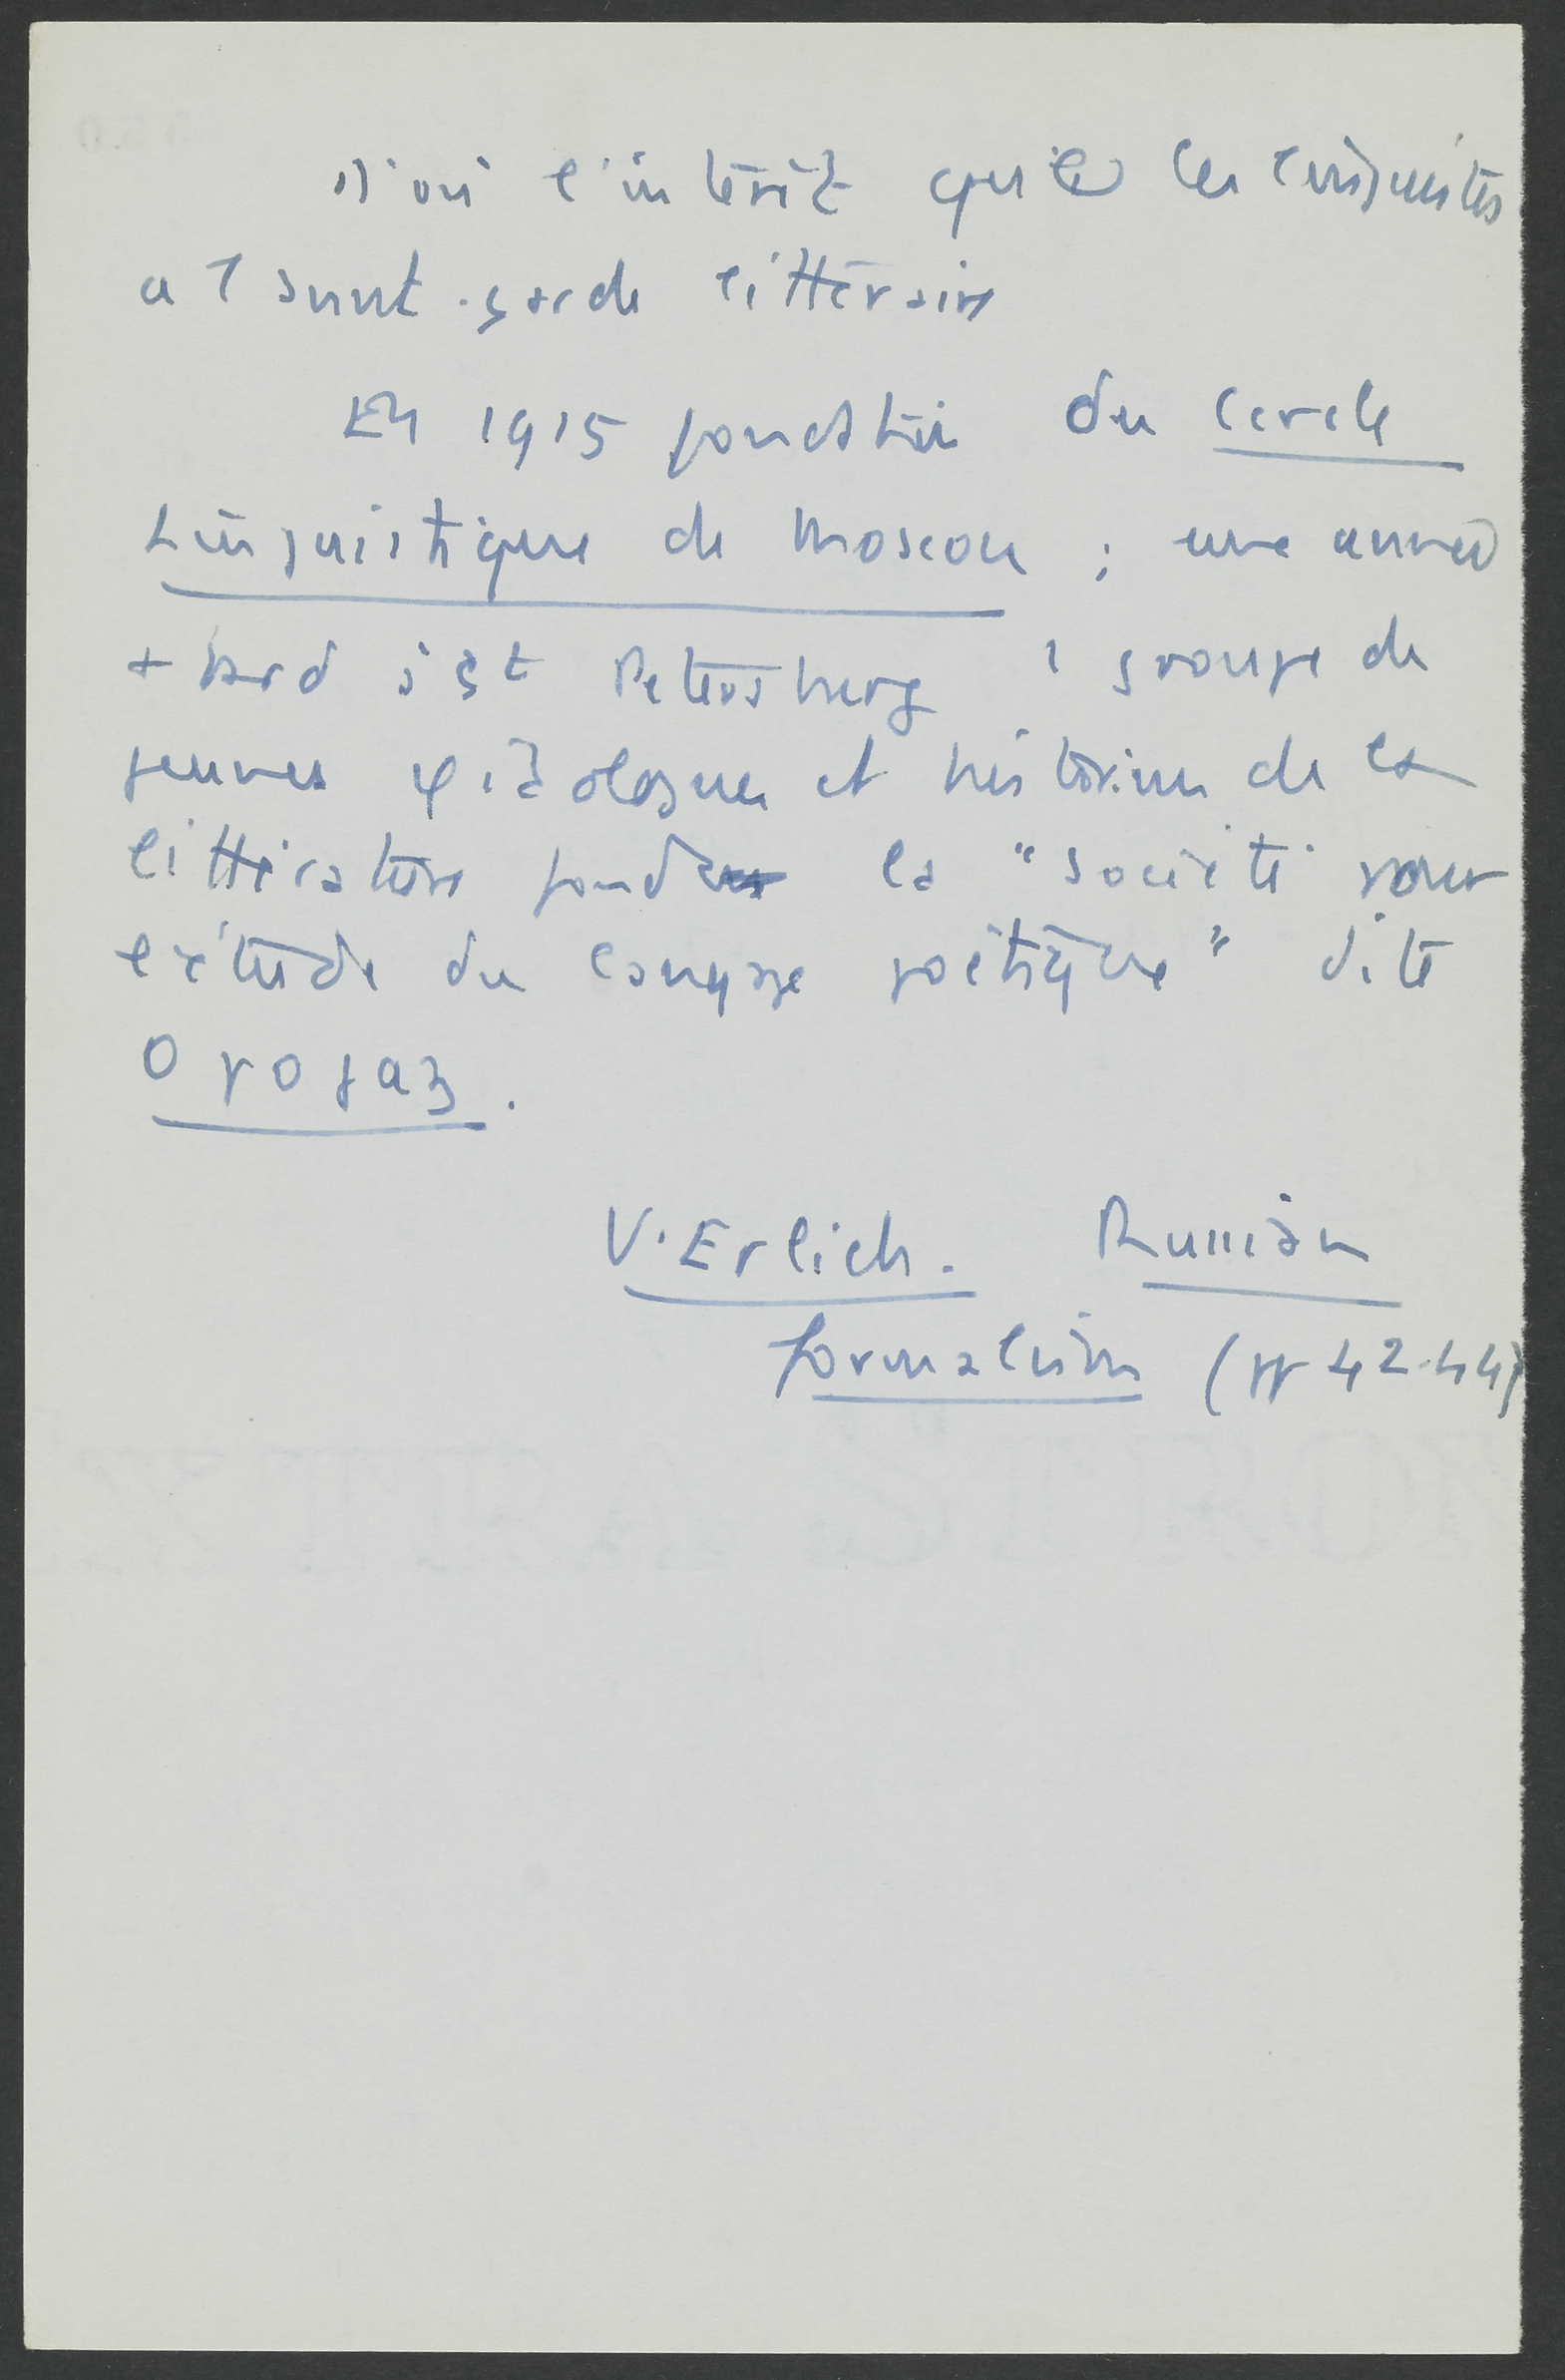 D'où l'intérêt qu'ils les linguistes
a l'avant-garde littéraire
En 1915 fondation du Cercle
Linguistique de Moscou ; une année
+ tard à St Petersburg 1 groupe de
jeunes philologues et historiens de la
littérature fonde la "société pour
l'étude du langage poétique" dite
Opojaz.
V. Erlich. Russian
formalism (pp 42-44)